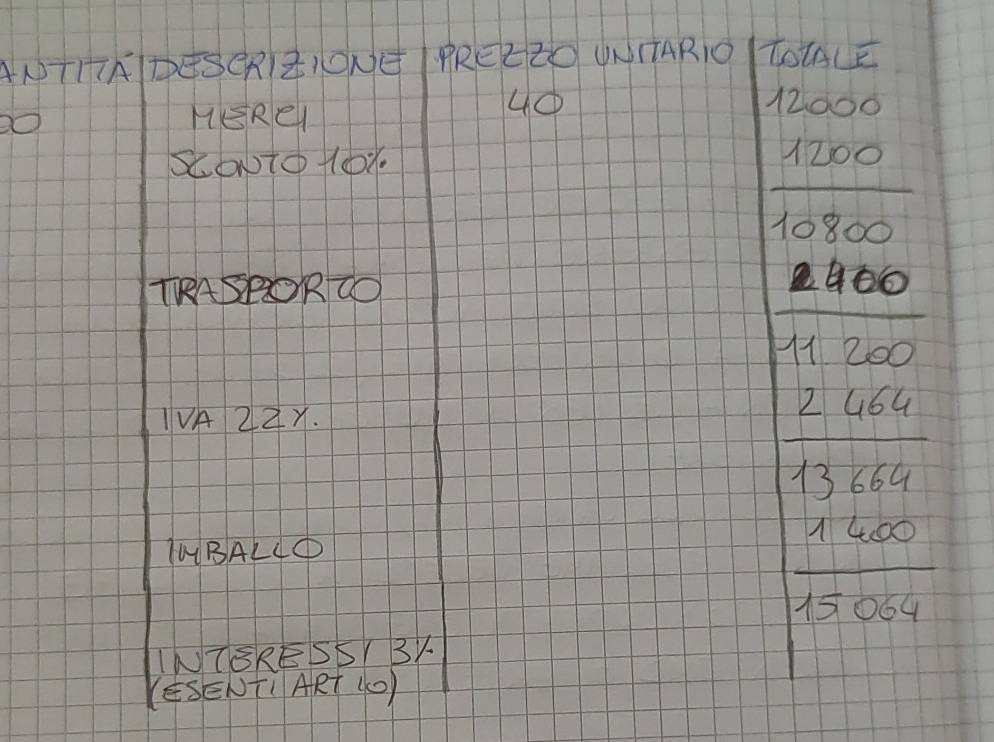 ANTITÀ DESCRIZIONE PREZZO UNITARIO TOTALE
00 MERCI 40 12000
SCONTO 10% 1200
10800
TRASPORTO 400
11 200
IVA 22%. 2 464
13 664
IMBALLO 1 400
15 064
INTERESSI 3%
(ESENTI ART 10)